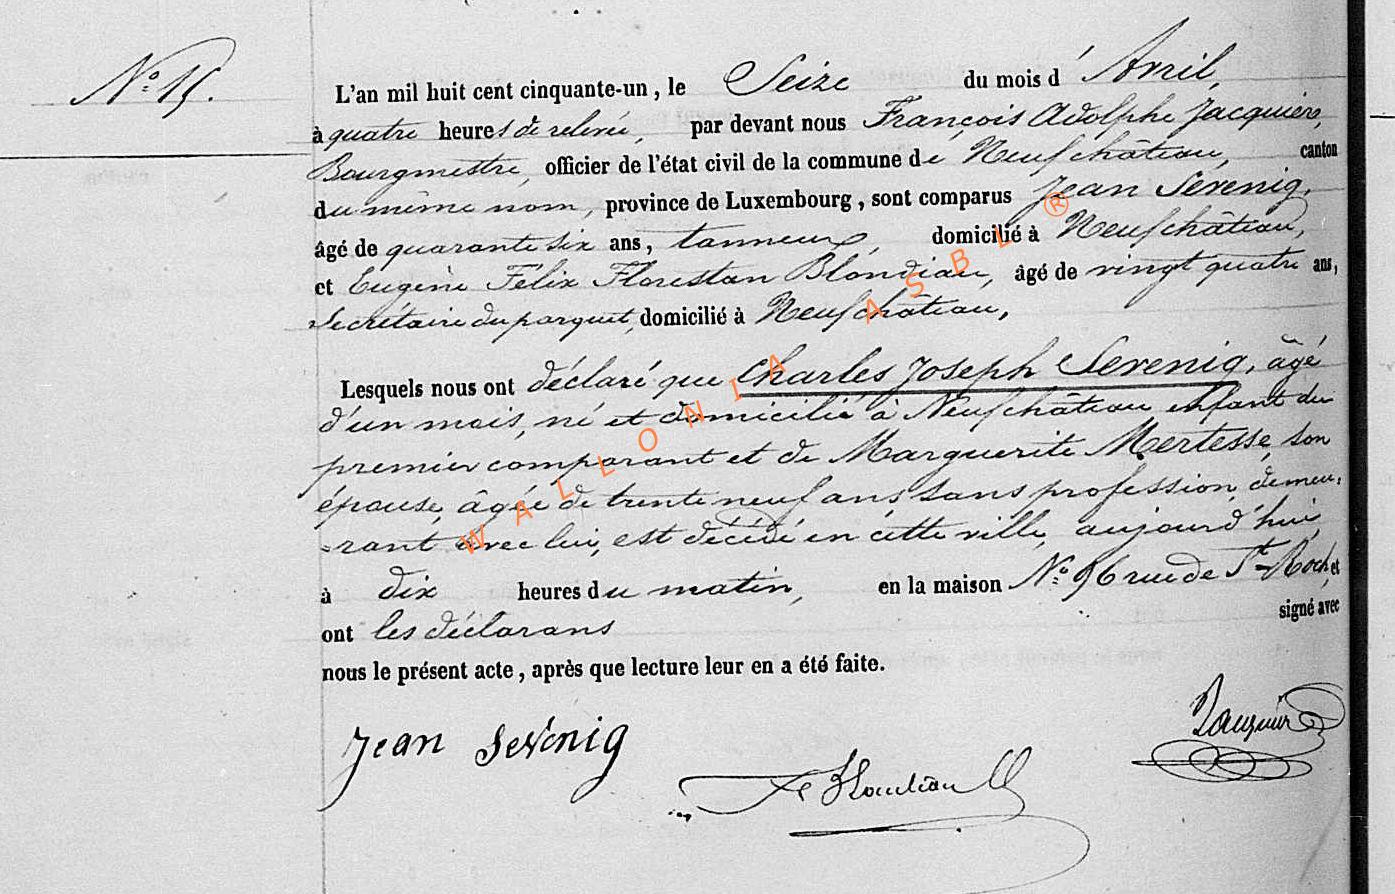 N.° 15.
L'an mil huit cent cinquante-un, le Seize du mois d'Avril,
à quatre heures de relevée, par devant nous François Adolphe Jacquière,
Bourgmestre, officier de l'état civil de la commune de Neufchâteau, canton
du même nom, province de Luxembourg, sont comparus Jean Sevenig,
âgé de quarante six ans, tanneur, domicilié à Neufchâteau,
et Eugène Félix Florestan Blondiau, âgé de vingt quatre ans,
secrétaire du parquet, domicilié à Neufchâteau.
Lesquels nous ont déclaré que Charles Joseph Sevenig, âgé
d'un mois, né et domicilié à Neufchâteau enfant du
premier comparant et de Marguerite Mertesse, son
épouse, âgée de trente neuf ans, sans profession, demeu-
rant avec lui, est décédé en cette ville, aujourd'hui,
à dix heures du matin, en la maison N.° 96 rue de St Roch, et
ont les déclarans signé avec
nous le présent acte, après que lecture leur en a été faite.
Jean Sevenig
Blondiau
WALLONIA ASBL ®